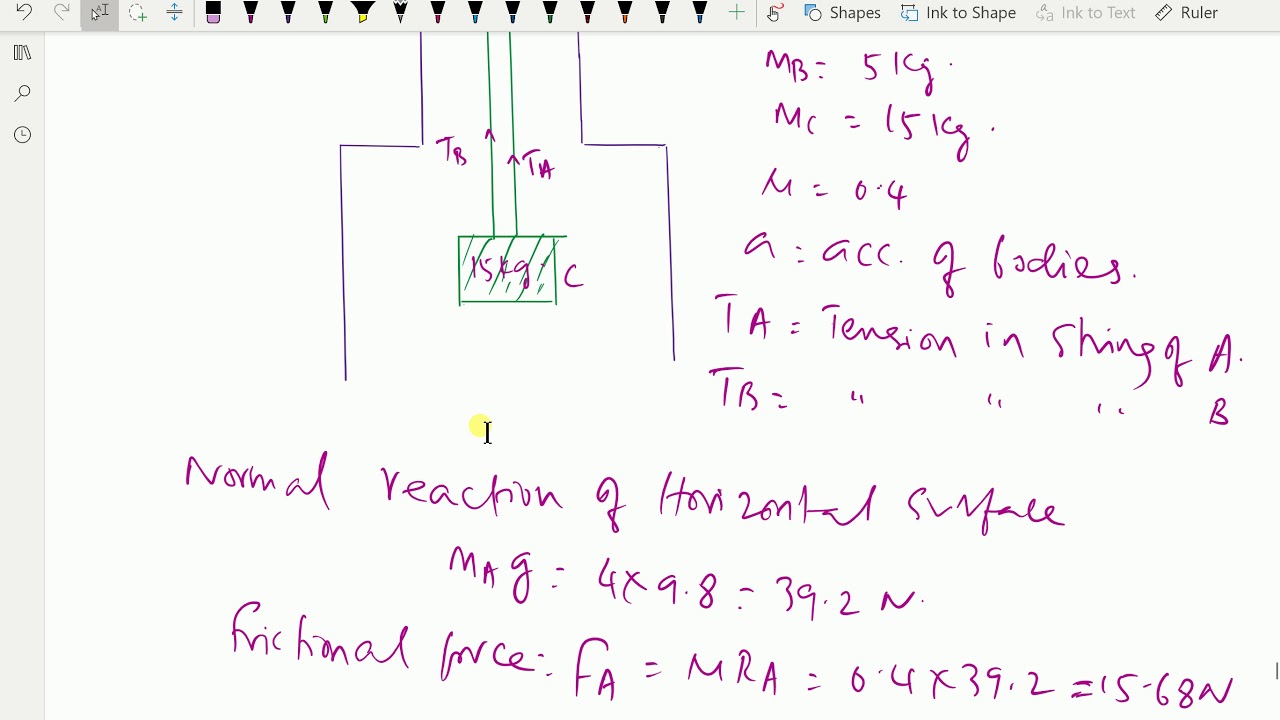 Shapes Ink to Shape Ink to Text Ruler
MB = 5 Kg.
MC = 15 Kg.
μ = 0.4
TB
TA
a = acc. of bodies.
15 kg. C
TA = Tension in string of A.
TB = " " " B
Normal reaction of Horizontal surface
MA g = 4×9.8 = 39.2 N.
frictional force = FA = μRA = 0.4×39.2 = 15.68N